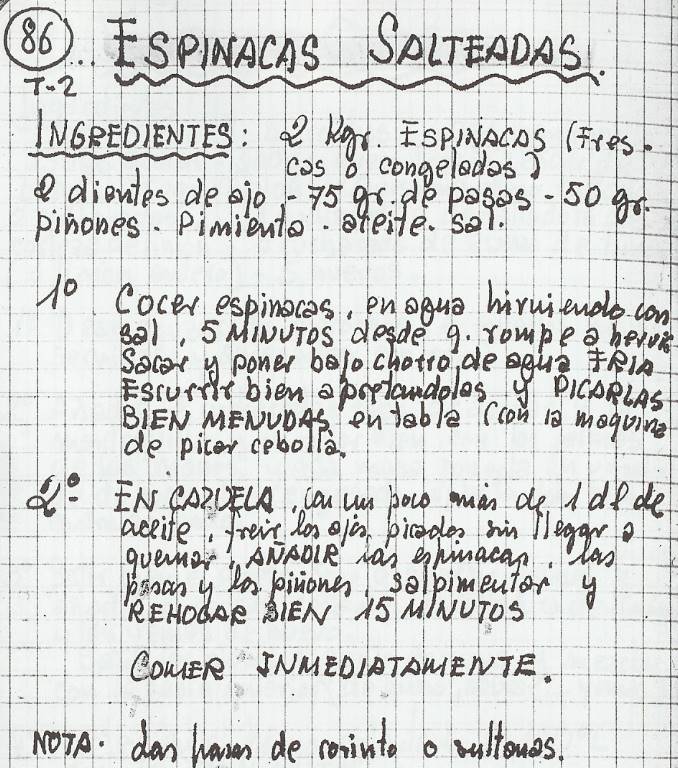 86 ... ESPINACAS SALTEADAS.
T-2
INGREDIENTES: 2 Kgr. ESPINACAS (Fres-
cas o congeladas)
2 dientes de ajo - 75 gr. de pasas - 50 gr.
piñones. Pimienta. aceite. sal.
1º Cocer espinacas, en agua hirviendo con
sal, 5 MINUTOS desde q. rompe a hervir
Sacar y poner bajo chorro de agua FRIA
Escurrir bien apretandolas y PICARLAS
BIEN MENUDAS en tabla (con la maquina
de picar cebolla.
2º EN CAZUELA, con un poco más de 1 dl de
aceite, freir los ajos picados sin llegar a
quemar, AÑADIR las espinacas, las
pasas y los piñones, salpimentar y
REHOGAR BIEN 15 MINUTOS
COMER INMEDIATAMENTE.
NOTA. Las pasas de corinto o sultanas.